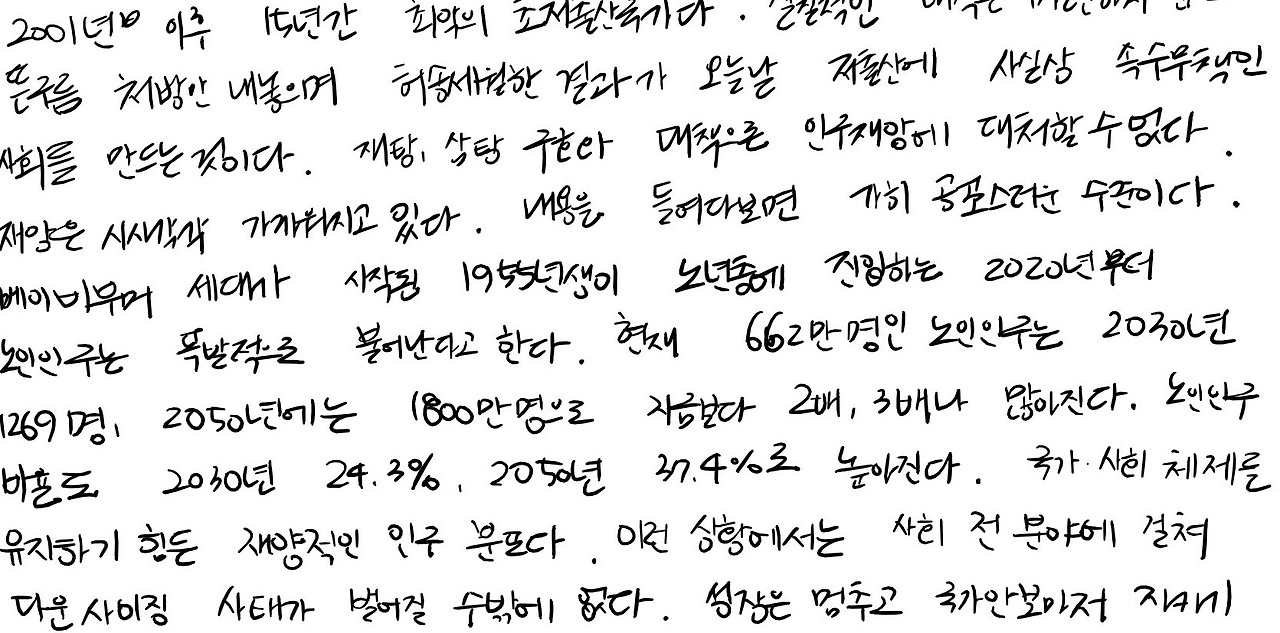 2001년 이후 15년간 최악의 초저출산국가다. 실질적인
뜬구름 처방만 내놓으며 허송세월한 결과가 오늘날 저출산에 사실상 속수무책인
사회를 만드는 것이다. 재탕, 삼탕 구호나 대책으론 인구재앙에 대처할 수 없다.
재앙은 시시각각 가까워지고 있다. 내용을 들여다보면 가히 공포스러운 수준이다.
베이비부머 세대가 시작된 1955년생이 노년층에 진입하는 2020년부터
노인인구는 폭발적으로 불어난다고 한다. 현재 662만명인 노인인구는 2030년
1269명, 2050년에는 1800만명으로 지금보다 2배, 3배나 많아진다. 노인인구
비율도 2030년 24.3%, 2050년 37.4%로 높아진다. 국가·사회 체제를
유지하기 힘든 재앙적인 인구 분포다. 이런 상황에서는 사회 전 분야에 걸쳐
다운사이징 사태가 벌어질 수밖에 없다. 성장은 멈추고 국가안보마저